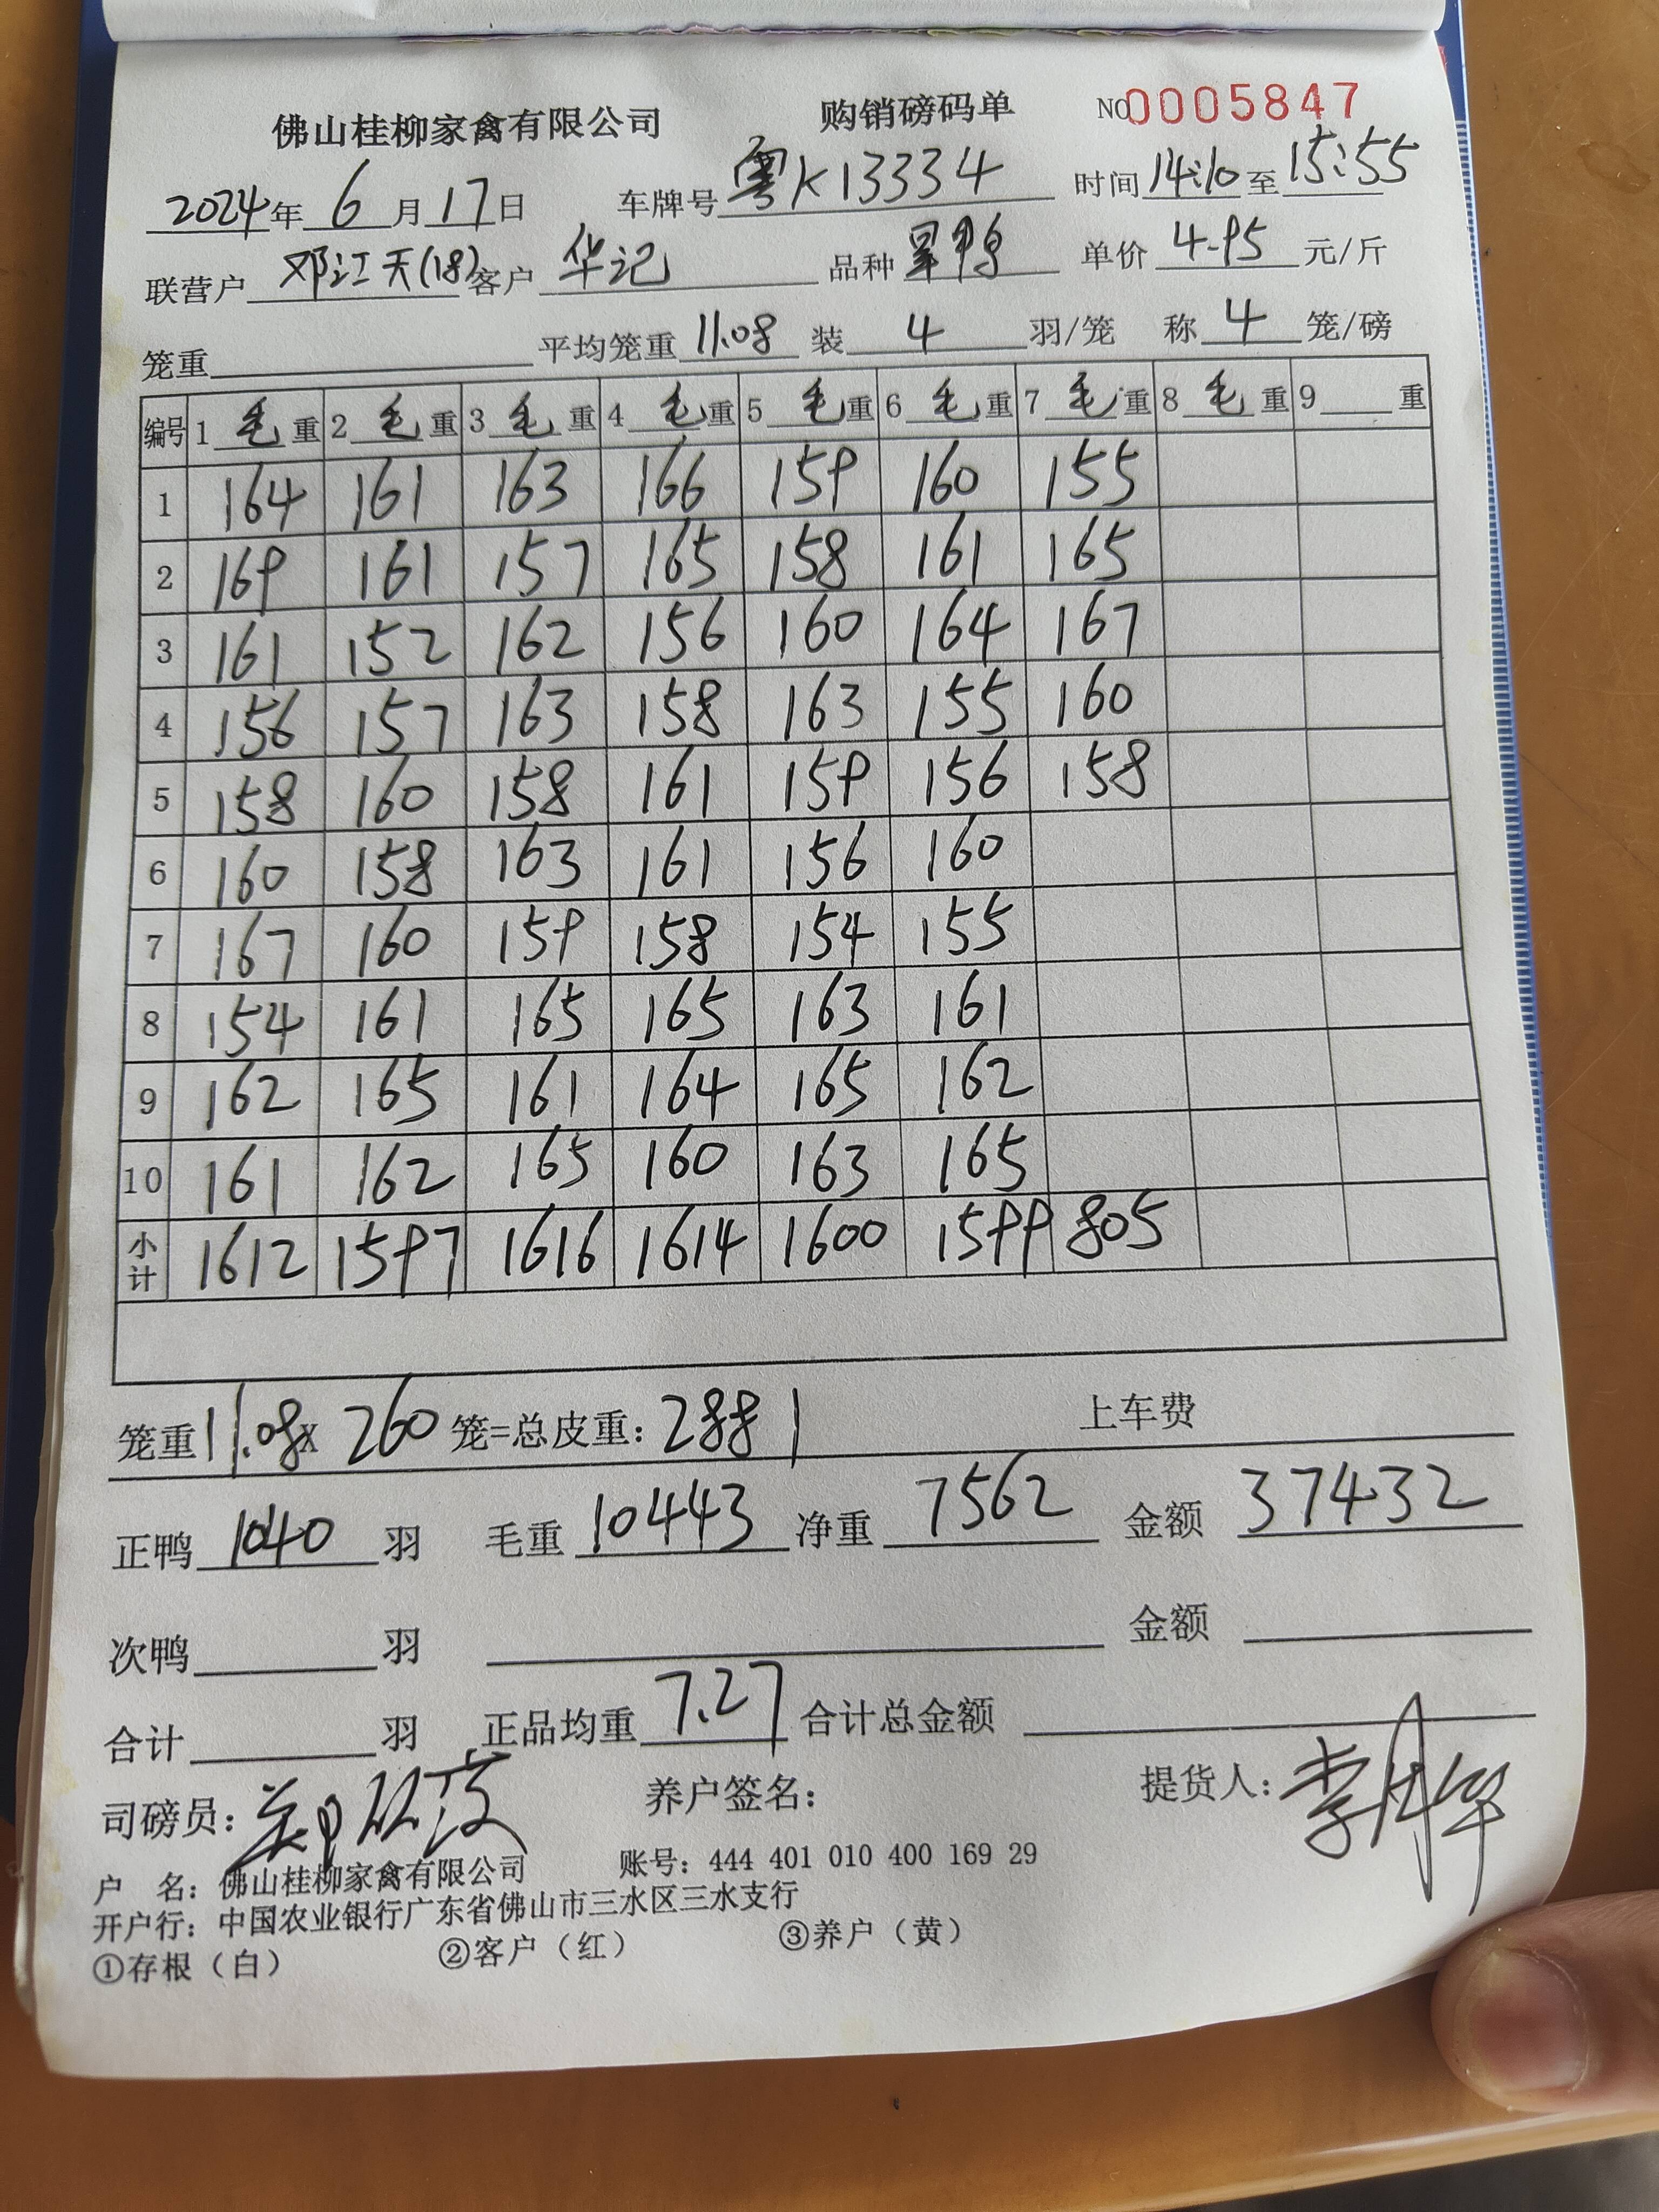 佛山桂柳家禽有限公司 购销磅码单 NO0005847
2024年 6 月 17 日 车牌号 粤K13334 时间 14:10 至 15:55
联营户 邓江天(18) 客户 华记 品种 单价 4.95 元/斤
笼重 平均笼重 11.08 装 4 羽/笼 称 4 笼/磅
编号 1 毛 重 2 毛 重 3 毛 重 4 毛 重 5 毛 重 6 毛 重 7 毛 重 8 毛 重 9 重
1 164 161 163 166 159 160 155
2 169 161 157 165 158 161 165
3 161 152 162 156 160 164 167
4 156 157 163 158 163 155 160
5 158 160 158 161 159 156 158
6 160 158 163 161 156 160
7 167 160 159 158 154 155
8 154 161 165 165 163 161
9 162 165 161 164 165 162
10 161 162 165 160 163 165
小计 1612 1597 1616 1614 1600 1599 805
笼重 11.08 x 260 笼=总皮重: 2881 上车费
正鸭 1040 羽 毛重 10443 净重 7562 金额 37432
次鸭 羽 金额
合计 羽 正品均重 7.27 合计总金额
司磅员: 养户签名: 提货人:
户 名: 佛山桂柳家禽有限公司 账号: 444 401 010 400 169 29
开户行: 中国农业银行广东省佛山市三水区三水支行
①存根（白） ②客户（红） ③养户（黄）